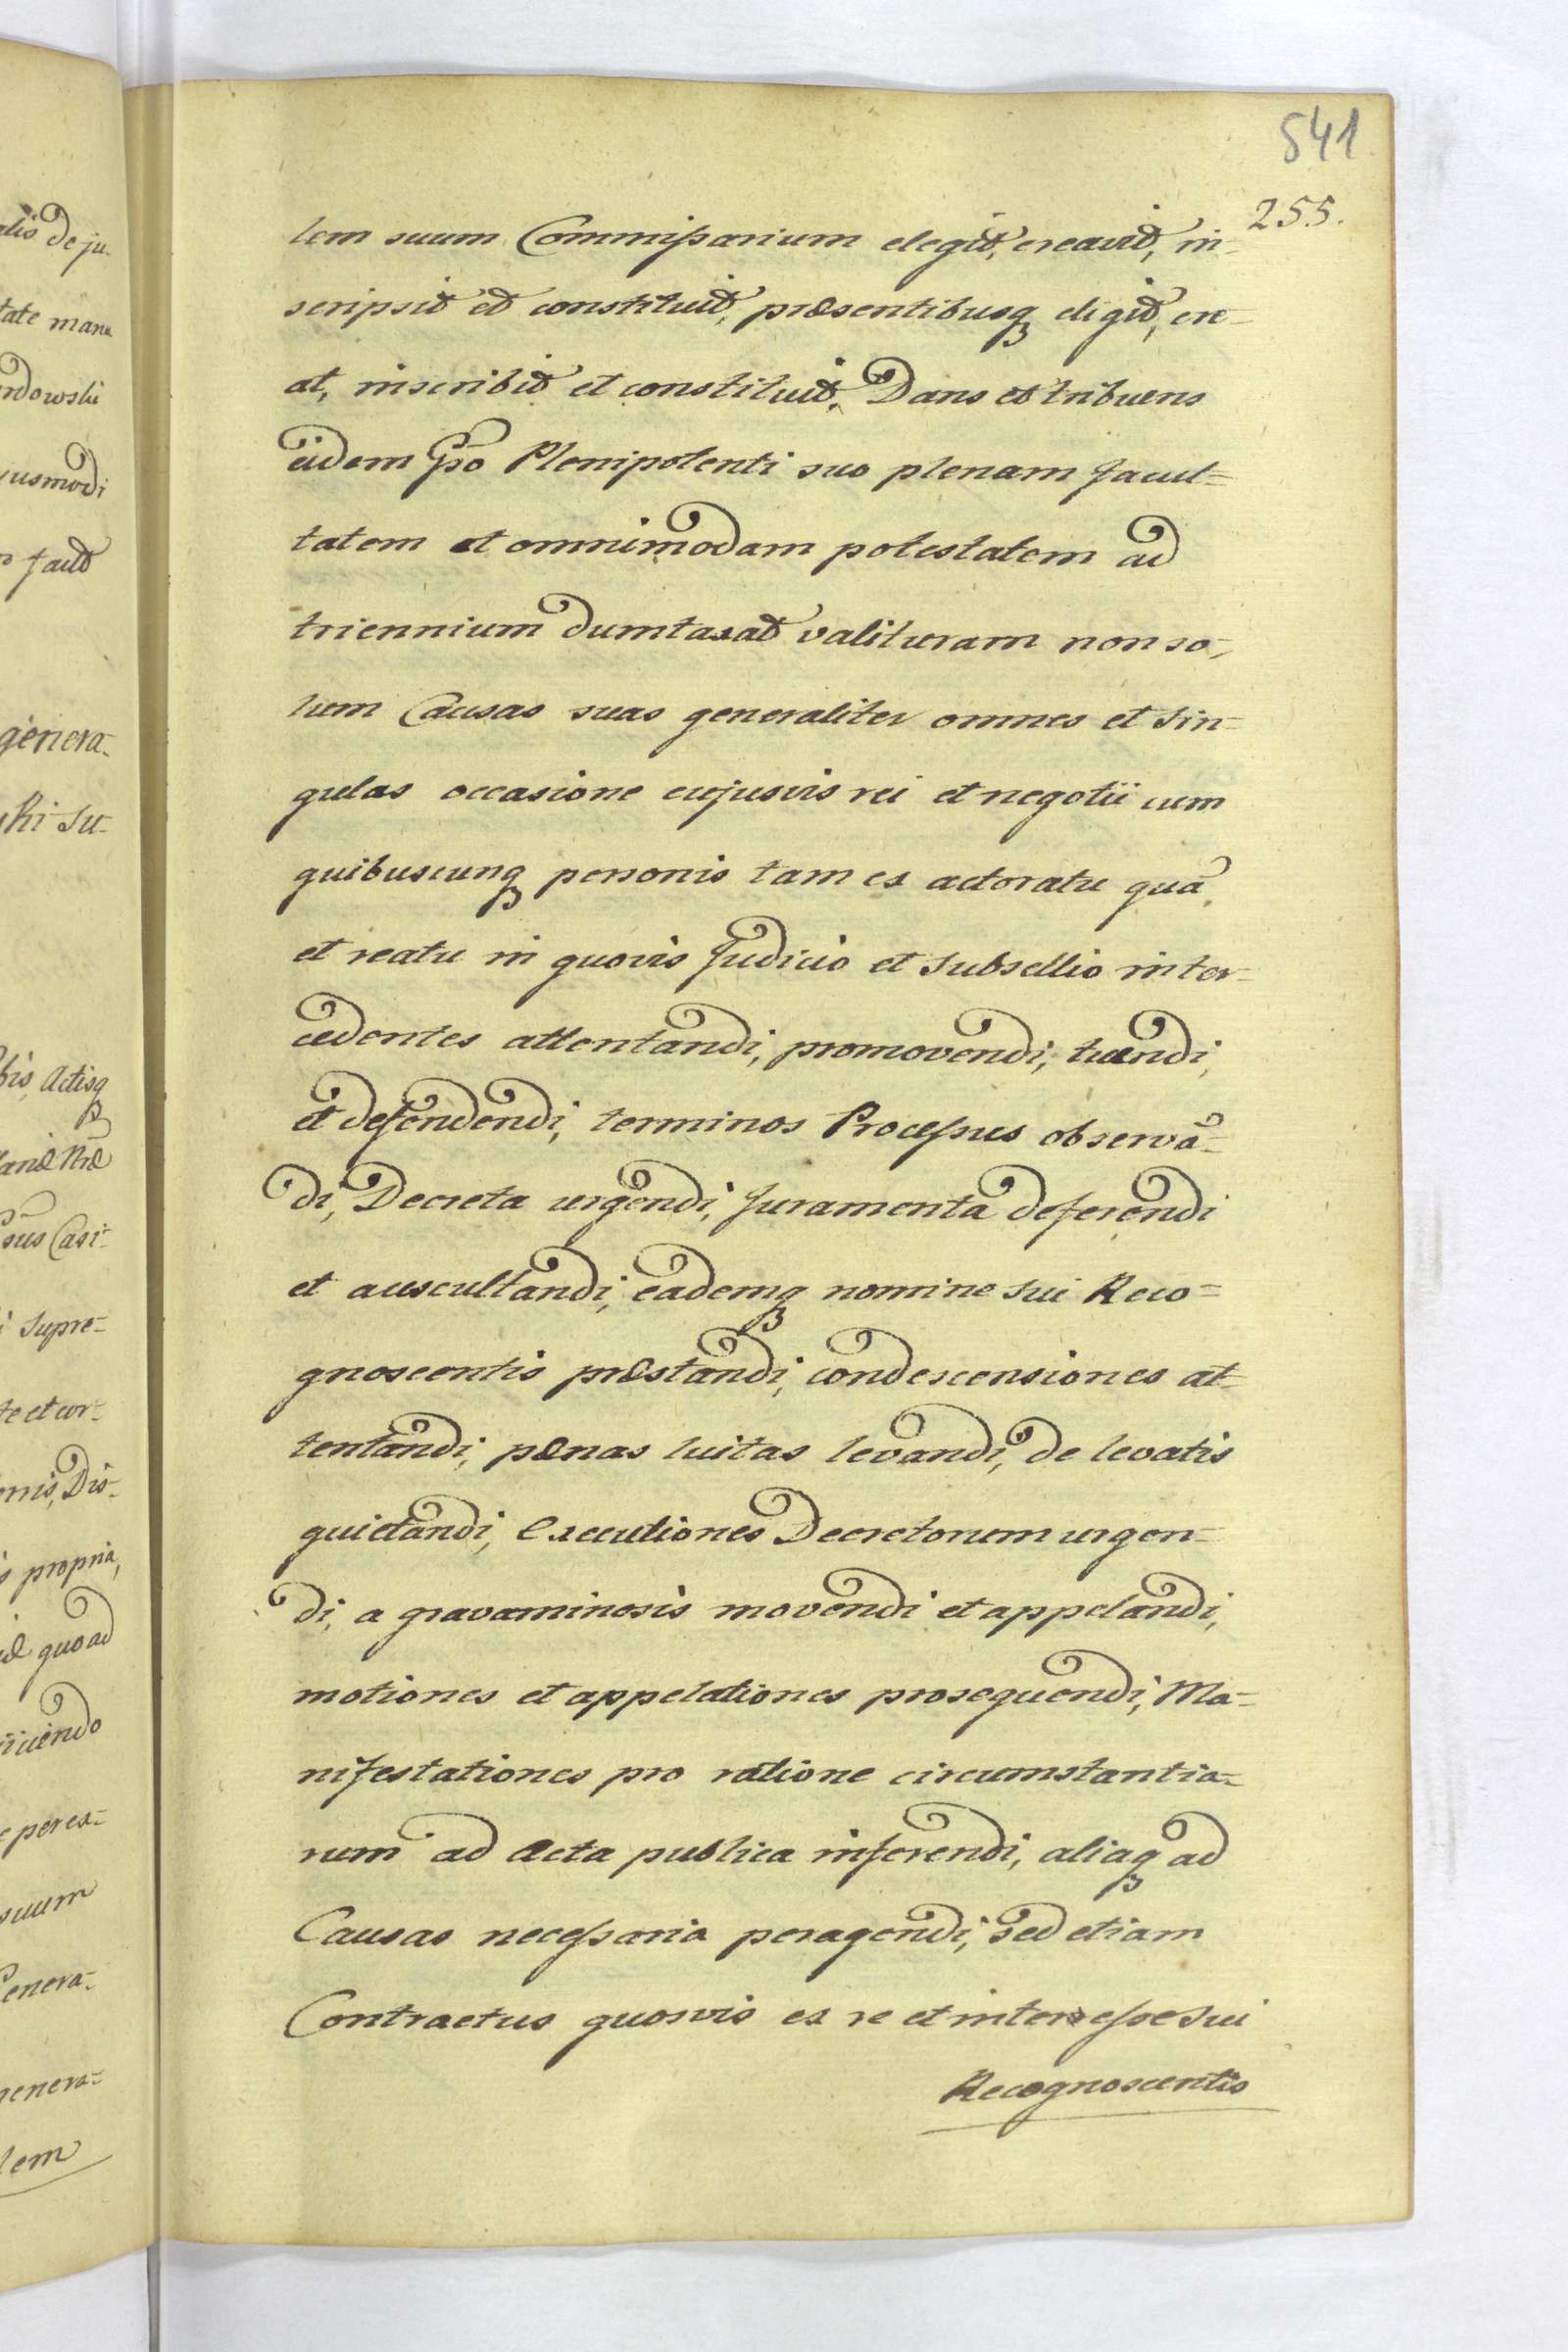 541
255.
lem suum Commissarium elegit, creavit, in-
scripsit et constituit, præsentibusq eligit, cre-
at, inscribit et constituit. Dans et tribuens
eidem Gso Plenipotenti suo plenam facul=
tatem et omnimodam potestatem ad
triennium dumtaxat valituram non so-
lum Causas suas generaliter omnes et sin-
gulas occasione cujusvis rei et negotii cum
quibuscunq personis tam ex actoratu quã
et reatu in quovis Judicio et Subsellio inter-
cedentes attentandi, promovendi, tuendi,
et defendendi, terminos Processus observã-
di, Decreta urgendi, Juramenta deferendi
et auscultandi, eademq nomine sui Reco=
gnoscentis præstandi, condescensiones at-
tentandi, pænas luitas levandi, de levatis
quietandi, Executiones Decretorum urgen-
di, a gravaminosis movendi et appelandi,
motiones et appelationes prosequendi, Ma-
nifestationes pro ratione circumstantia-
rum ad Acta publica inferendi, aliaq ad
Causas necessaria peragendi, sed etiam
Contractus quosvis ex re et interesse sui
Recognoscentis
alis de ju-
tate manu
ndowski
usmodi
fact
genera-
ki Su-
bis, Actisq
sus Casi-
i Supre-
te et cor-
omis, Dis-
s propria,
quoad
iciendo
e perex-
suum
Genera-
genera-
lem